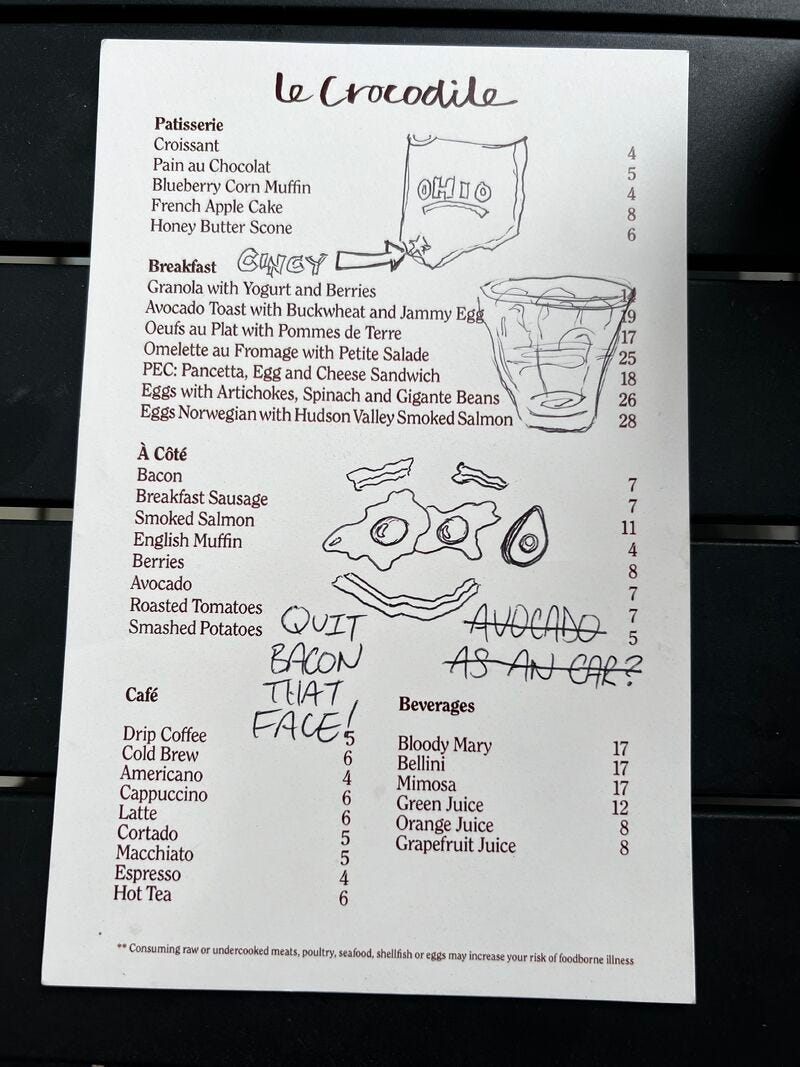 le Crocodile
Patisserie
Croissant 4
Pain au Chocolat 5
Blueberry Corn Muffin 4
French Apple Cake 8
Honey Butter Scone 6
OHIO
CINCY
Breakfast
Granola with Yogurt and Berries 14
Avocado Toast with Buckwheat and Jammy Egg 19
Oeufs au Plat with Pommes de Terre 17
Omelette au Fromage with Petite Salade 25
PEC: Pancetta, Egg and Cheese Sandwich 18
Eggs with Artichokes, Spinach and Gigante Beans 26
Eggs Norwegian with Hudson Valley Smoked Salmon 28
À Côté
Bacon 7
Breakfast Sausage 7
Smoked Salmon 11
English Muffin 4
Berries 8
Avocado 7
Roasted Tomatoes 7
Smashed Potatoes 5
QUIT
BACON
THAT
FACE!
AVOCADO
AS AN EAR?
Café
Drip Coffee 5
Cold Brew 6
Americano 4
Cappuccino 6
Latte 6
Cortado 5
Macchiato 5
Espresso 4
Hot Tea 6
Beverages
Bloody Mary 17
Bellini 17
Mimosa 17
Green Juice 12
Orange Juice 8
Grapefruit Juice 8
** Consuming raw or undercooked meats, poultry, seafood, shellfish or eggs may increase your risk of foodborne illness